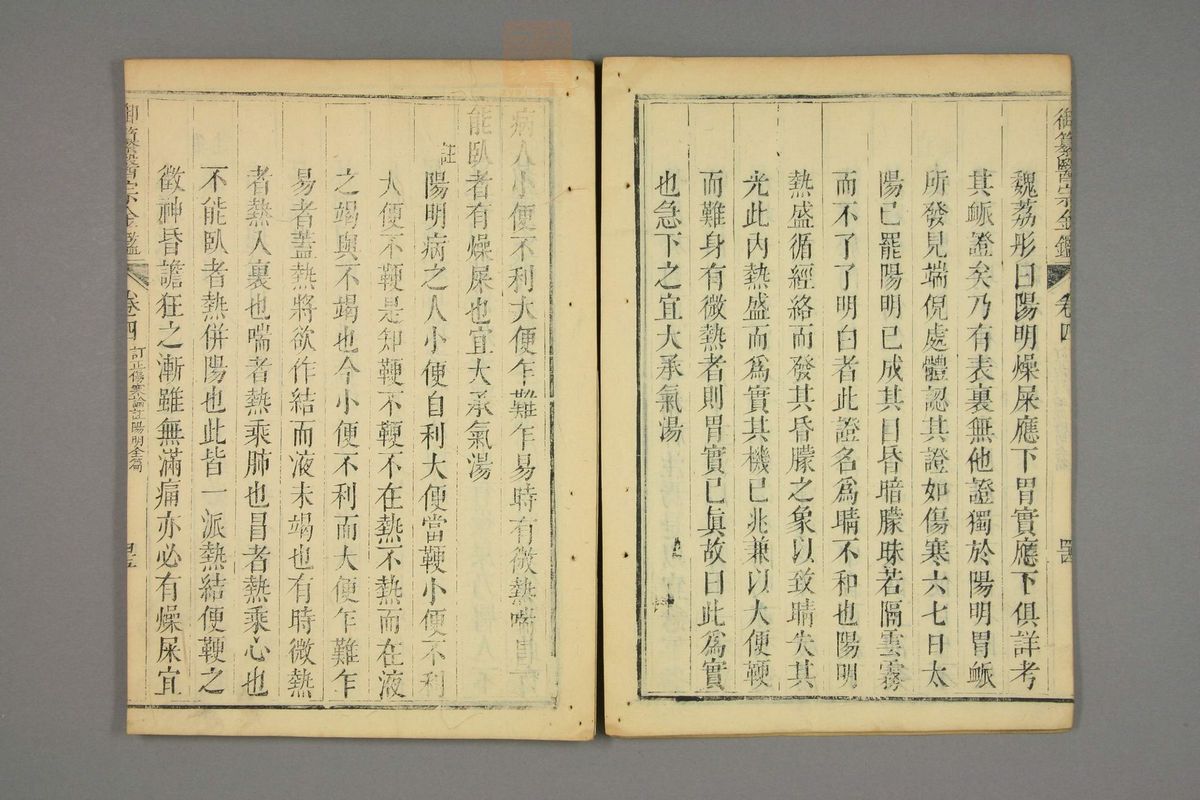 御纂醫宗金鑑 卷四 四
魏荔彤曰陽明燥屎應下胃實應下俱詳考
其脈證矣乃有表裏無他證獨於陽明胃脈
所發見端倪處體認其證如傷寒六七日太
陽已罷陽明已成其目昏暗朦昧若隔雲霧
而不了了明白者此證名爲睛不和也陽明
熱盛循經絡而發其昏朦之象以致睛失其
光此內熱盛而爲實其機已兆兼以大便鞕
而難身有微熱者則胃實已眞故曰此爲實
也急下之宜大承氣湯
病人小便不利大便乍難乍易時有微熱喘冒不
能臥者有燥屎也宜大承氣湯
註
陽明病之人小便自利大便當鞕小便不利
大便不鞕是知鞕不鞕不在熱不熱而在液
之竭與不竭也今小便不利而大便乍難乍
易者蓋熱將欲作結而液未竭也有時微熱
者熱入裏也喘者熱乘肺也冒者熱乘心也
不能臥者熱併陽也此皆一派熱結便鞕之
徵神昏譫狂之漸雖無滿痛亦必有燥屎宜
御纂醫宗金鑑 卷四 訂正傷寒論註陽明全篇